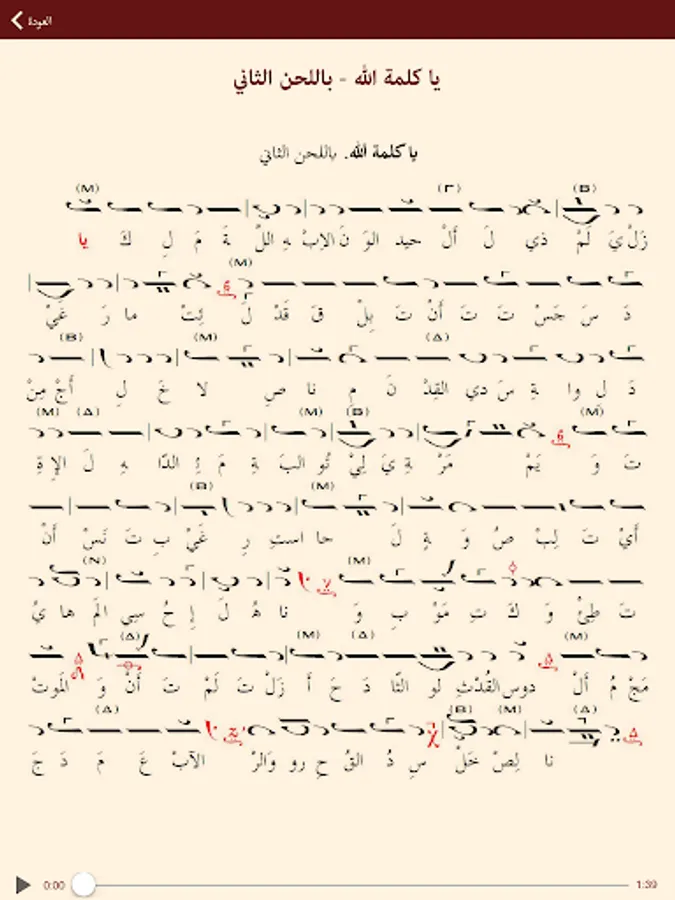 العودة
يا كلمة الله - باللحن الثاني
يا كلمة الله. باللحن الثاني
(M) (Γ) (B)
يا كَ لِ مَ ةَ اللّ هِ الاِبْ نَ الوَ حيد أَلْ لَ ذي لَمْ يَ زَلْ
(M)
غَيْ رَ ما ئِتْ لَ قَدْ قَ بِلْ تَ أَنْ تَ تَ جَسْ سَ دَ
(B) (M) (Δ)
مِنْ أَجْ لِ خَ لا صِ نا مِ نَ القِدْ دي سَ ةِ وا لِ دَ
(M) (Δ) (M) (B) (M)
ةِ الإِ لَ هِ الدّا ئِ مَ ةِ البَ تُو لِيْ يَ ةِ مَرْ يَمْ وَ تَ
(B) (M)
أَنْ نَسْ تَ بِ غَيْ رِ است حا لَ ةٍ وَ صُ لِبْ تَ أَيْ
(N) (M)
يُ ها المَ سِي حُ إِ لَ هُ نا وَ بِ مَوْ تِ كَ وَ طِئْ تَ
(Δ) (M) (Δ) (M)
المَوتْ وَ أَنْ تَ لَمْ تَ زَلْ أَ حَ دَ الثّا لو القُدْثِ دوس أَلْ مُ مَجْ
(Δ) (B) (M) (Δ)
جَ دَ مَ عَ الآبْ والرْ رو حِ القُ دُ سِ خَلْ لِصْ نا
0:00 1:39